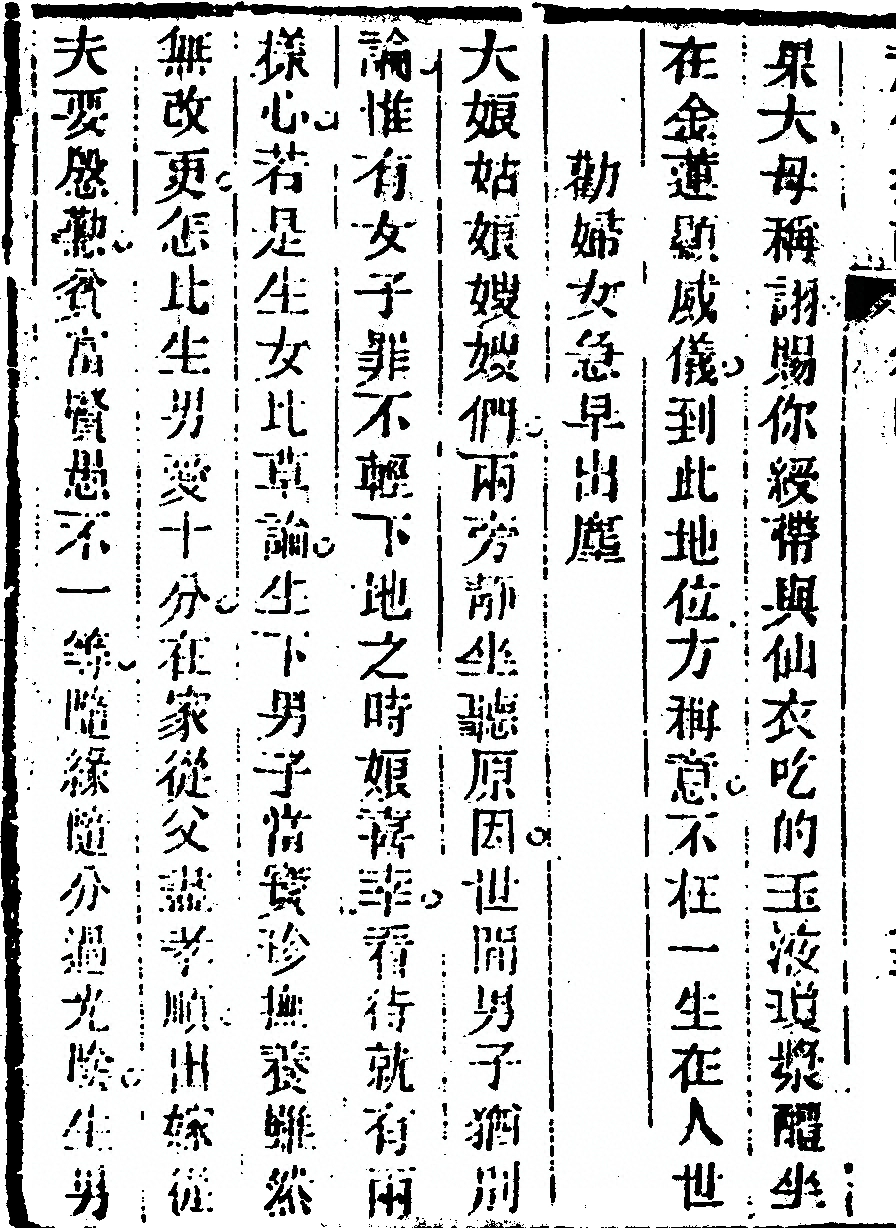 果大母稱詡賜你綬帶與仙衣吃的玉液瓊漿醴坐
在金蓮顯威儀到此地位方稱意不枉一生在人世
勸婦女急早出塵
大娘姑娘嫂嫂們兩旁靜坐聽原因世間男子猶別
論惟有女子罪不輕下地之時娘喜幸看待就有兩
樣心若是生女比草論生下男子當寶珍撫養雖然
無改更怎比生男愛十分在家從父盡孝順出嫁從
夫要慇懃貧富賢愚不一等隨緣隨分過光陰生男